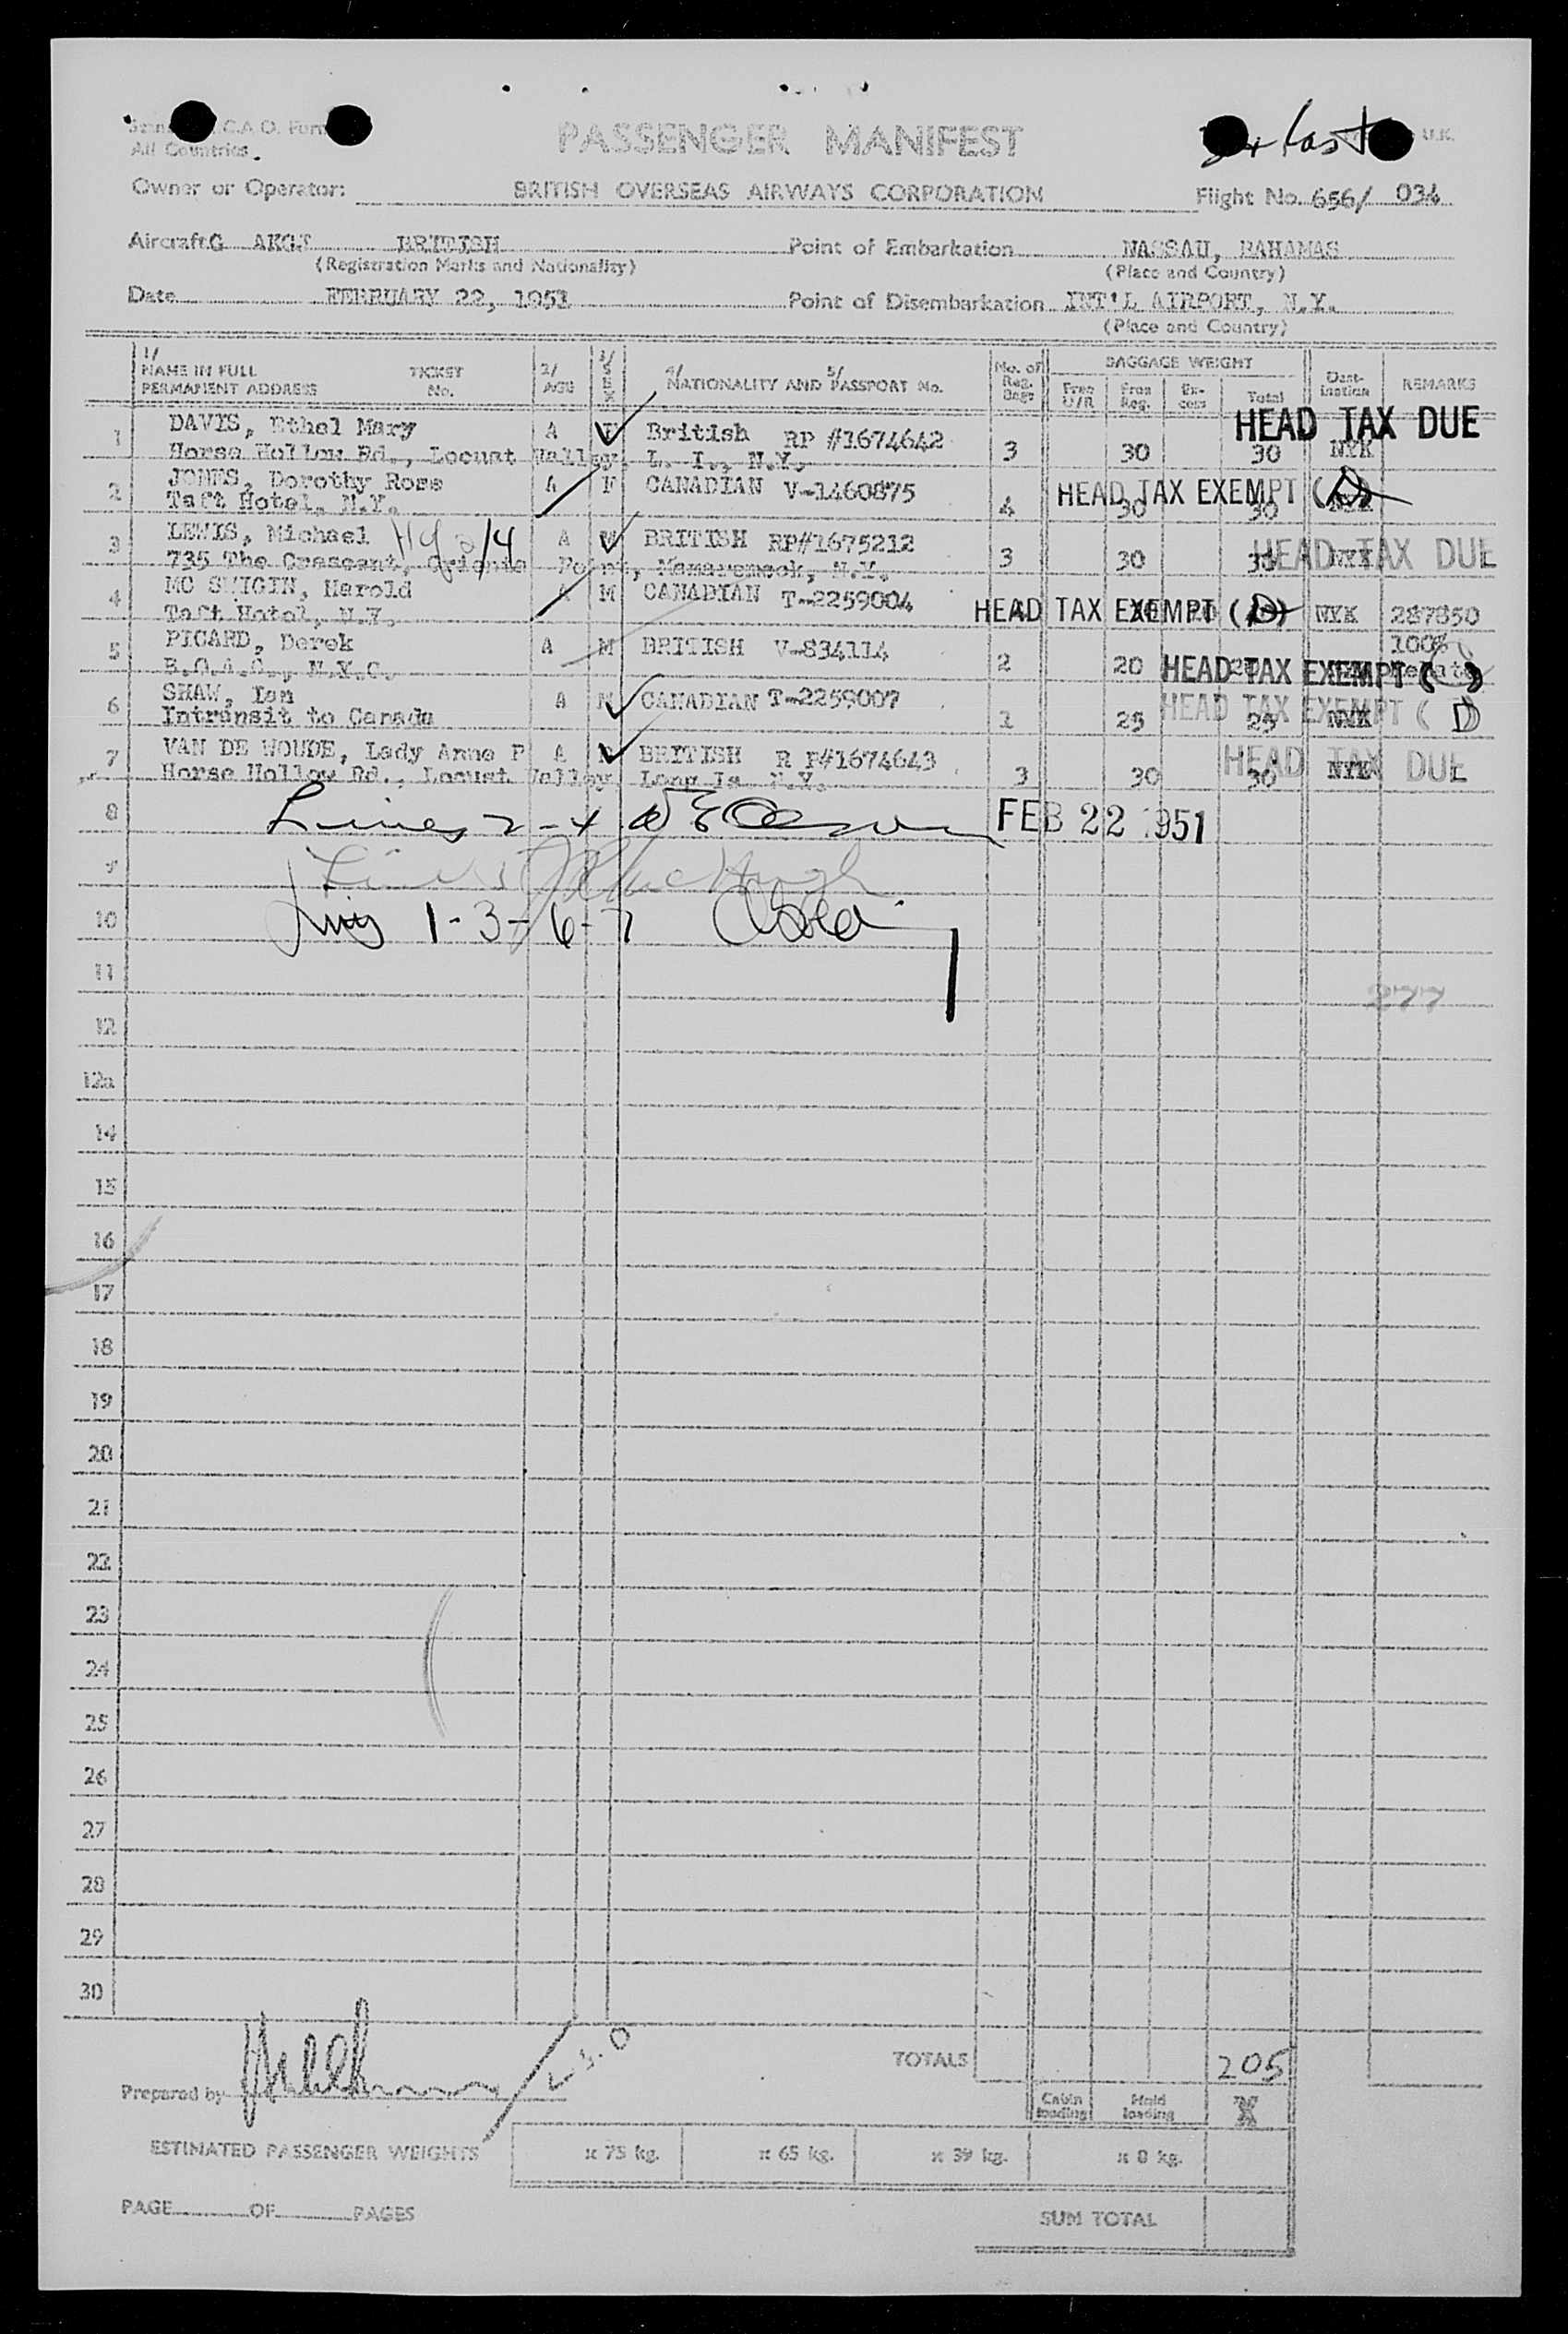 C.A.O. Form
All Countries.
PASSENGER MANIFEST
last
U.K.
Owner or Operator: BRITISH OVERSEAS AIRWAYS CORPORATION
Flight No. 656/ 034
Aircraft G AKGJ BRITISH
Point of Embarkation NASSAU, BAHAMAS
(Registration Marks and Nationality)
(Place and Country)
Date FEBRUARY 22, 1951
Point of Disembarkation INT'L AIRPORT, N.Y.
(Place and Country)
1/ NAME IN FULL PERMANENT ADDRESS TICKET No. 2/ AGE 3/ SEX 4/ NATIONALITY AND 5/ PASSPORT No. No. of Reg. Bags BAGGAGE WEIGHT Free U/R Free Reg. Ex-cess Total Dest-ination REMARKS
HEAD TAX DUE
1 DAVIS, Ethel Mary A F British RP #1674642 3 30 30 NYK
Horse Hollow Rd., Locust Valley, L. I., N.Y.
2 JONES, Dorothy Rose A F CANADIAN V-1460875 4 30 30
Taft Hotel, N.Y.
HEAD TAX EXEMPT (D)
3 LEWIS, Michael A M BRITISH RP#1675212 3 30 NYK
735 The Crescent, Oriente Point, Mamaroneck, N.Y.
HEAD TAX DUE
4 MC SWIGIN, Harold A M CANADIAN T-2259004 NYK 287850
Taft Hotel, N.Y.
HEAD TAX EXEMPT (D)
5 PICARD, Derek A M BRITISH V-834114 2 20 100%
B.O.A.C., N.Y.C.
HEAD TAX EXEMPT ( )
6 SHAW, Ian A M CANADIAN T-2259007 25 25 NYK
Intransit to Canada
HEAD TAX EXEMPT (D)
7 VAN DE WOUDE, Lady Anne P A BRITISH R P#1674643 3 30 30 NYK
Horse Hollow Rd., Locust Valley Long Is N.Y.
HEAD TAX DUE
8 Lines 2-4
FEB 22 1951
9
10 Lines 1-3-6-7
11
277
12
12a
14
15
16
17
18
19
20
21
22
23
24
25
26
27
28
29
30
TOTALS 205
Prepared by
Cabin loading Hold loading X
ESTIMATED PASSENGER WEIGHTS x 75 kg. x 65 kg. x 39 kg. x 8 kg.
PAGE OF PAGES
SUM TOTAL